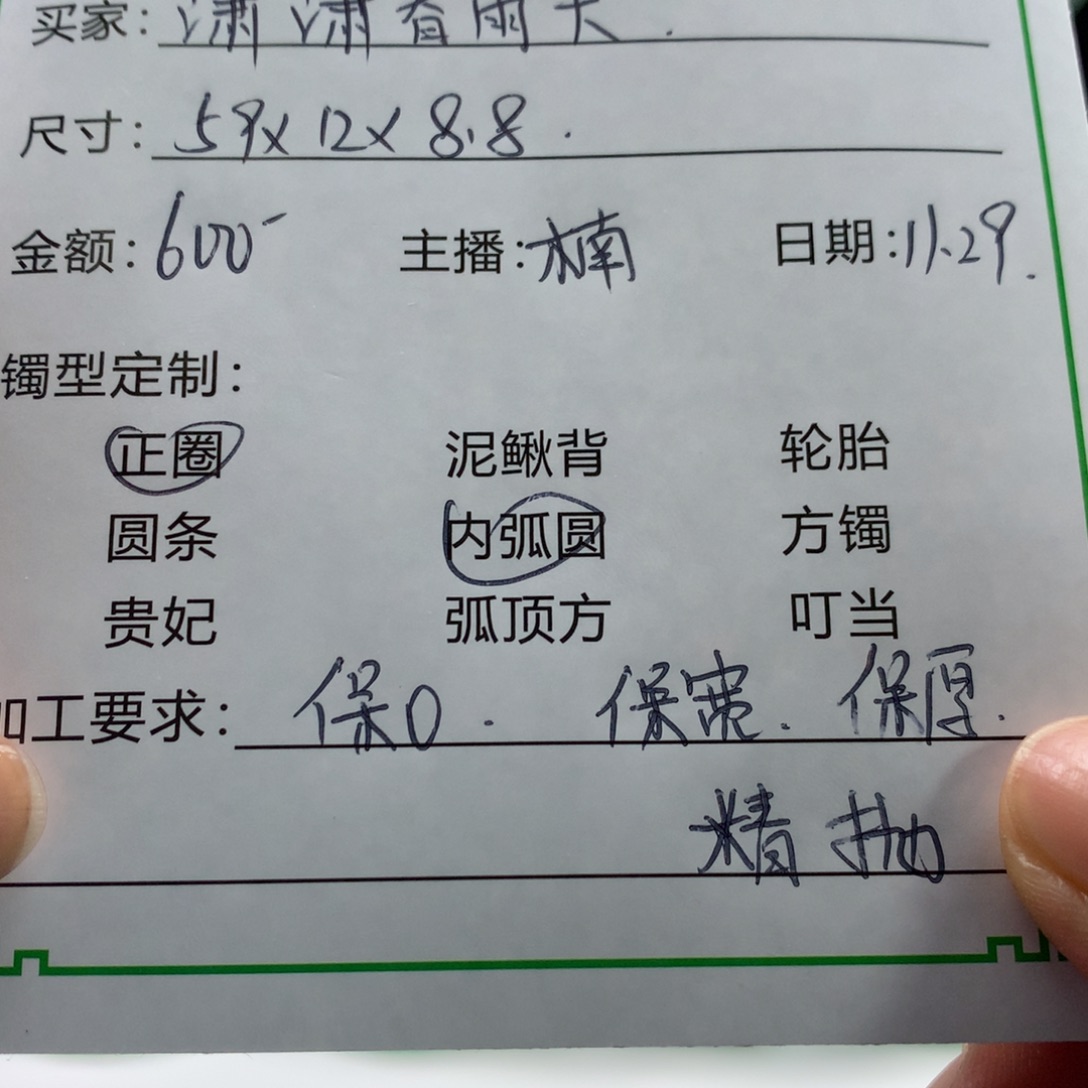 买家：潇潇春雨天.
尺寸：59x12x8.8.
金额：600 主播：楠 日期：11.29.
镯型定制：
正圈 泥鳅背 轮胎
圆条 内弧圆 方镯
贵妃 弧顶方 叮当
加工要求：保口. 保宽. 保厚.
精抛